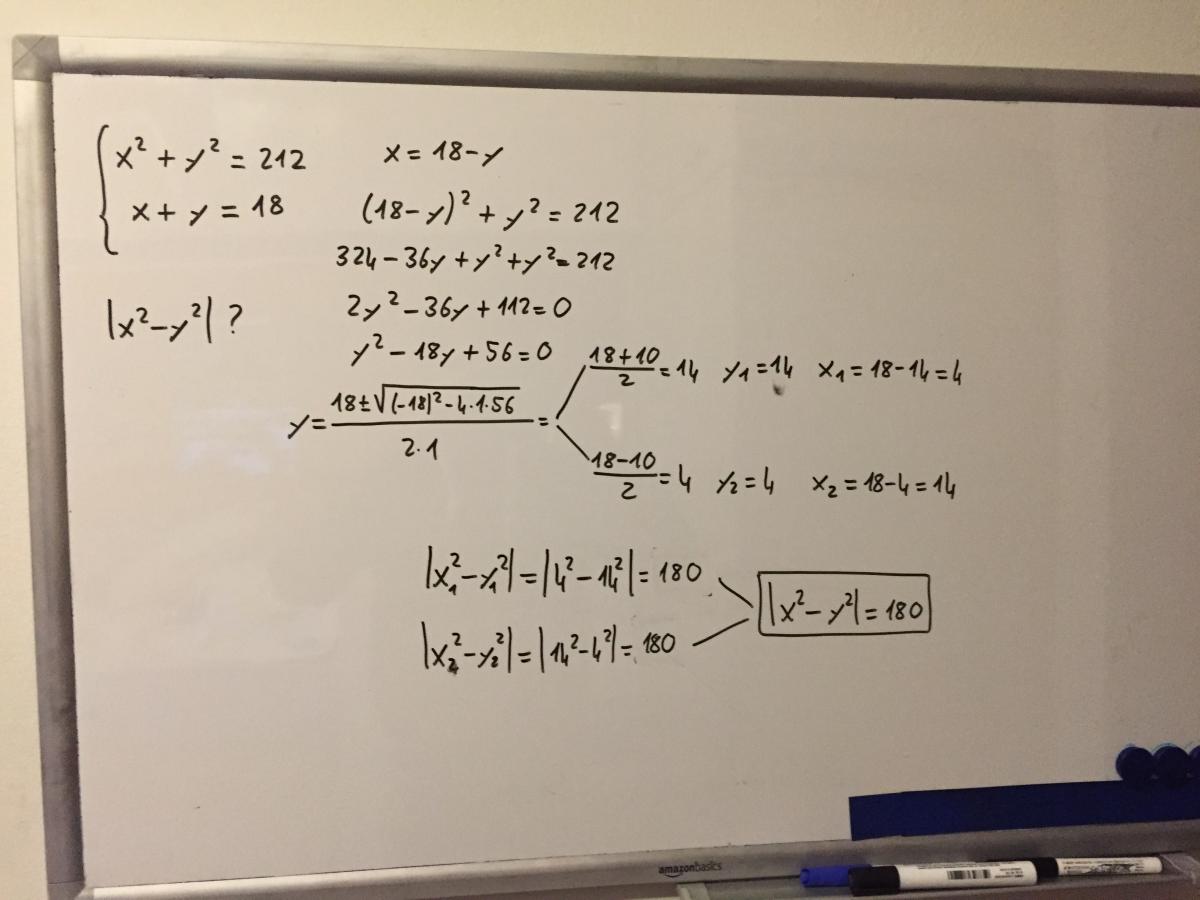 x² + y² = 212
x + y = 18
|x² − y²| ?
x = 18 − y
(18 − y)² + y² = 212
324 − 36y + y² + y² = 212
2y² − 36y + 112 = 0
y² − 18y + 56 = 0
y = (18 ± √((−18)² − 4·1·56)) / (2·1) =
(18+10)/2 = 14 y₁ = 14 x₁ = 18 − 14 = 4
(18−10)/2 = 4 y₂ = 4 x₂ = 18 − 4 = 14
|x₁² − y₁²| = |4² − 14²| = 180
|x₂² − y₂²| = |14² − 4²| = 180
|x² − y²| = 180
amazonbasics